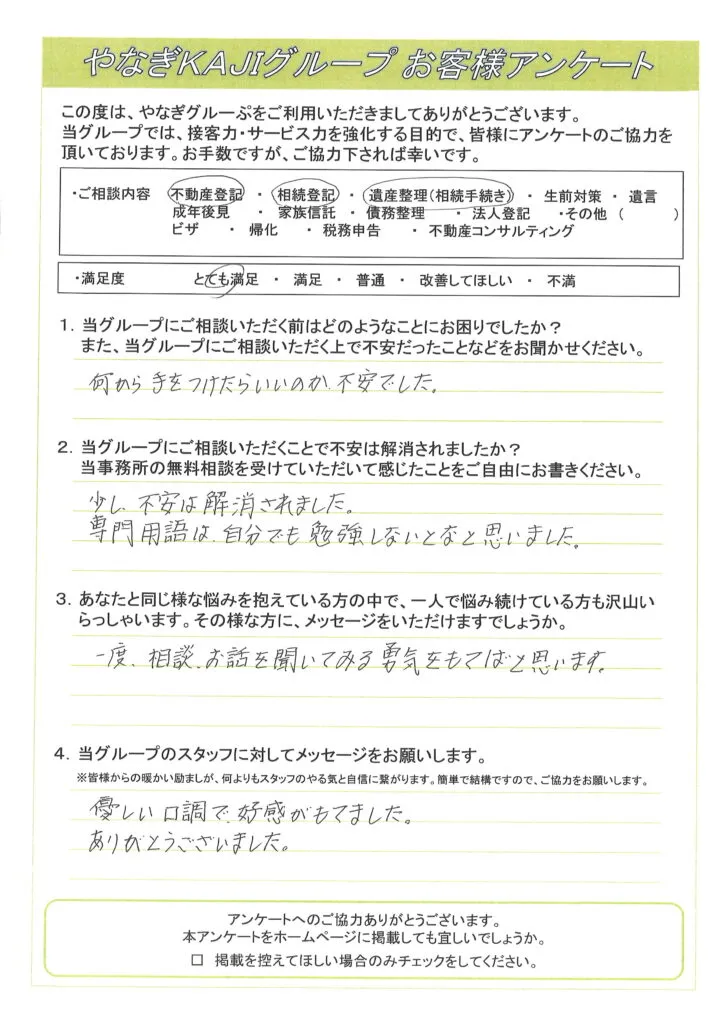 やなぎKAJIグループ お客様アンケート
この度は、やなぎグルーぷをご利用いただきましてありがとうございます。
当グループでは、接客力・サービス力を強化する目的で、皆様にアンケートのご協力を
頂いております。お手数ですが、ご協力下されば幸いです。
・ご相談内容 不動産登記 ・ 相続登記 ・ 遺産整理(相続手続き) ・ 生前対策 ・ 遺言
成年後見 ・ 家族信託 ・ 債務整理 ・ 法人登記 ・その他 ( )
ビザ ・ 帰化 ・ 税務申告 ・ 不動産コンサルティング
・満足度 とても満足 ・ 満足 ・ 普通 ・ 改善してほしい ・ 不満
1. 当グループにご相談いただく前はどのようなことにお困りでしたか?
また、当グループにご相談いただく上で不安だったことなどをお聞かせください。
何から手をつけたらいいのか、不安でした。
2. 当グループにご相談いただくことで不安は解消されましたか?
当事務所の無料相談を受けていただいて感じたことをご自由にお書きください。
少し、不安は解消されました。
専門用語は、自分でも勉強しないとなと思いました。
3. あなたと同じ様な悩みを抱えている方の中で、一人で悩み続けている方も沢山い
らっしゃいます。その様な方に、メッセージをいただけますでしょうか。
一度、相談、お話を聞いてみる勇気をもてばと思います。
4. 当グループのスタッフに対してメッセージをお願いします。
※皆様からの暖かい励ましが、何よりもスタッフのやる気と自信に繋がります。簡単で結構ですので、ご協力をお願いします。
優しい口調で、好感がもてました。
ありがとうございました。
アンケートへのご協力ありがとうございます。
本アンケートをホームページに掲載しても宜しいでしょうか。
□ 掲載を控えてほしい場合のみチェックをしてください。